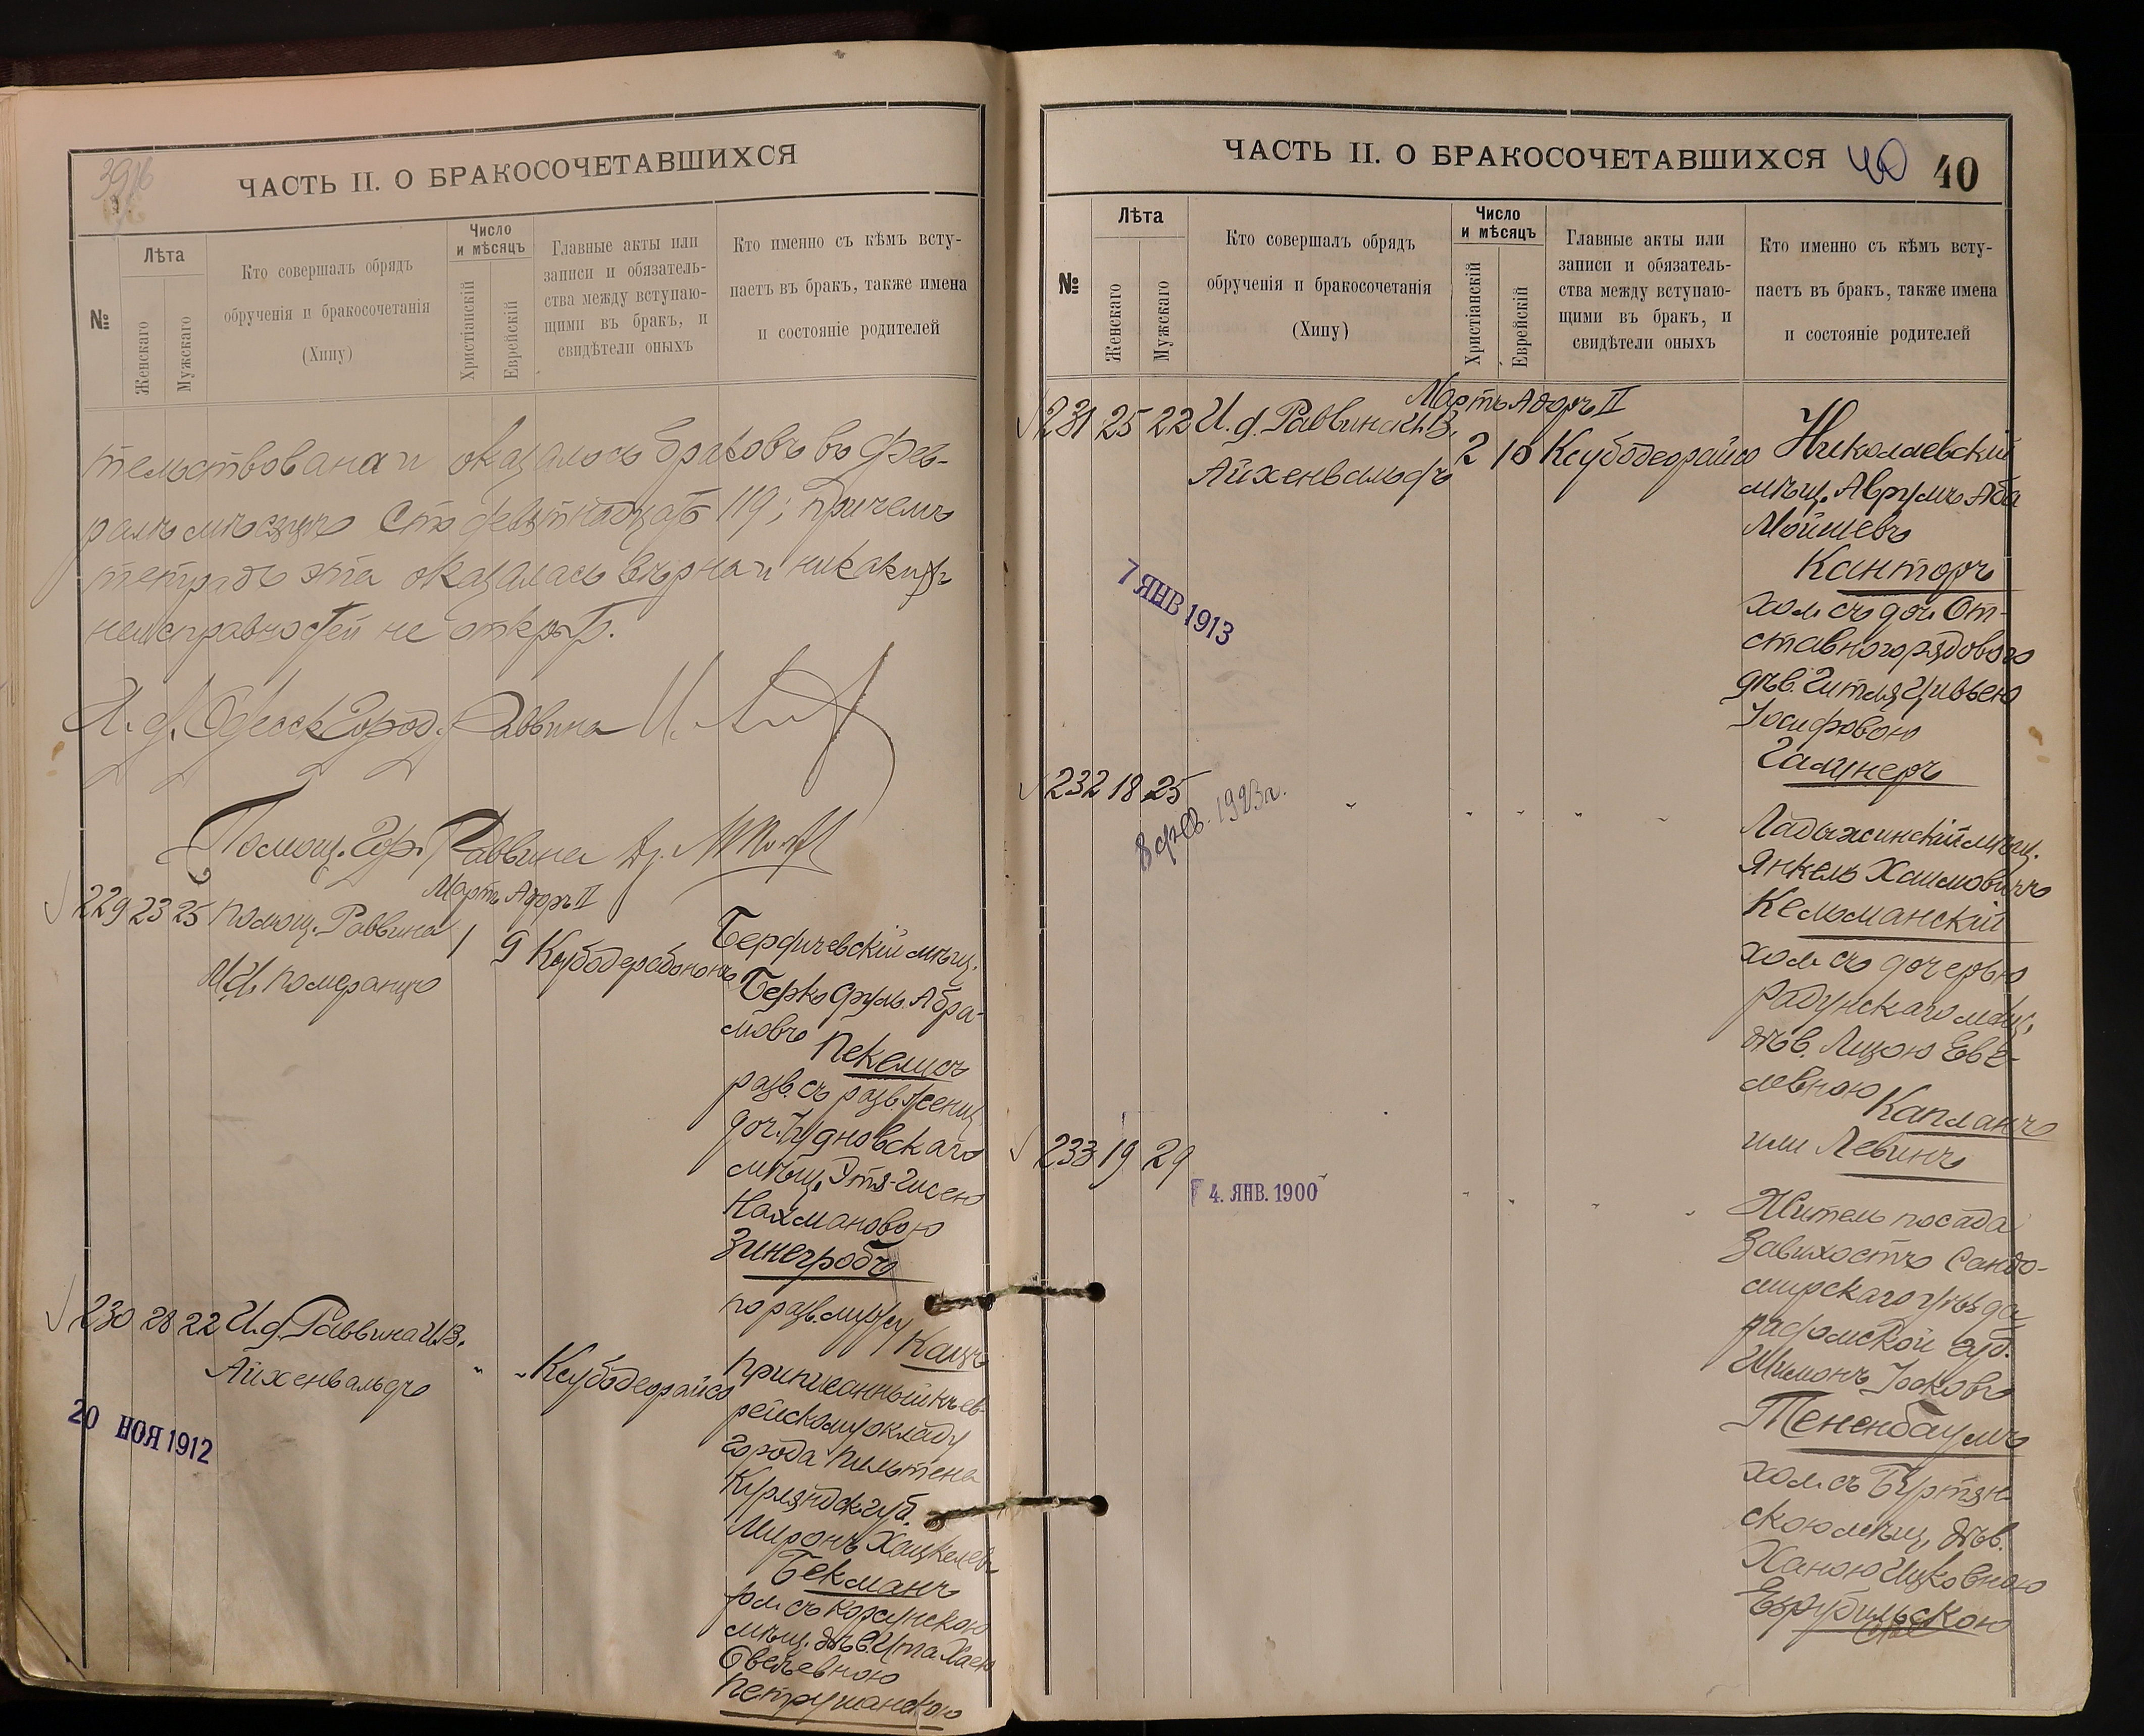 ЧАСТЬ II. О БРАКОСОЧЕТАВШИХСЯ
№
Лѣта
Женскаго
Мужскаго
Кто совершалъ обрядъ
обрученія и бракосочетанія
(Хипу)
Число
и мѣсяцъ
Христіанскій
Еврейскій
Главные акты или
записи и обязатель-
ства между вступаю-
щими въ бракъ, и
свидѣтели оныхъ
Кто именно съ кѣмъ всту-
паетъ въ бракъ, также имена
и состояніе родителей
тельствована и оказалось браковъ въ фев-
ралѣ мѣсяцѣ Сто девятнадцать 119; причемъ
тетрадь эта оказалась вѣрна и никакихъ
неисправностей не открыто.
И. д. Одесск Город. Раввина И.
Помощ. Гор. Раввина
Мартъ Адоръ II
229 23 25 Помощ. Раввина
Померанцъ
1 9 Ксубодерабононъ
Бердичевскій мѣщ.
Берко Сруль Абра-
мовъ Пекелисъ
разв. съ разв. женщ.
доч. Чудновскаго
мѣщ. Этя-Гисею
Нахмановою
Зинегробъ
по разв. мужу
Кацъ
230 28 22 И. д. Раввина И.В.
Айхенвальдъ
" " Ксубодеорайсо
20 НОЯ 1912
Приписанный къ ев-
рейскому окладу
города Пильтена
Курляндск. губ.
Миронъ Хацкелев.
Бекманъ
хол. съ Корсунскою
мѣщ. дѣв. Ита Хаею
Овсеевною
Петрушанскою
ЧАСТЬ II. О БРАКОСОЧЕТАВШИХСЯ 40 40
№
Лѣта
Женскаго
Мужскаго
Кто совершалъ обрядъ
обрученія и бракосочетанія
(Хипу)
Число
и мѣсяцъ
Христіанскій
Еврейскій
Главные акты или
записи и обязатель-
ства между вступаю-
щими въ бракъ, и
свидѣтели оныхъ
Кто именно съ кѣмъ всту-
паетъ въ бракъ, также имена
и состояніе родителей
Мартъ Адоръ II
231 25 22 И. д. Раввина И.В.
Айхенвальдъ
2 10 Ксубодеорайсо
7 ЯНВ 1913
Николаевскій
мѣщ. Аврумъ Аба
Мойшевъ
Канторъ
хол. съ доч. От-
ставного рядового
дѣв. Гитля Цивьею
Іосифовою
Галинеръ
232 18 25 " " " " "
8 фев. 1923 г.
Ладыжинскій мѣщ.
Янкель Хаимовичъ
Кельманскій
хол. съ дочерью
Радунскаго мѣщ.
дѣв. Лизою Еве-
левною Капланъ
или Левинъ
233 19 29 " " " " "
4. ЯНВ. 1900
Житель посада
Завихостъ Сандо-
мирскаго уѣзда
Радомской губ.
Шимонъ Іосковъ
Тененбаумъ
хол. съ Буртян-
скою мѣщ. дѣв.
Ханою Ицковною